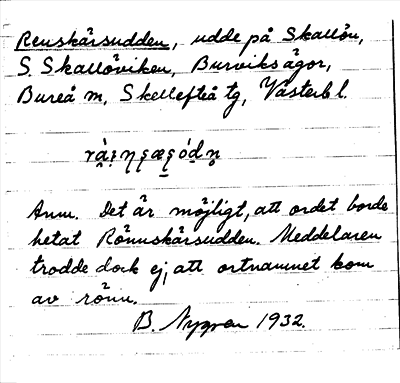 Renskärsudden, udde på Skallön,
S. Skallöviken, Burviksägor,
Bureå m, Skellefteå tg, Västerb l.
Anm. Det är möjligt, att ordet borde
hetat Rönnskärsudden. Meddelaren
trodde dock ej, att ortnamnet kom
av rönn.
B. Nygren 1932.